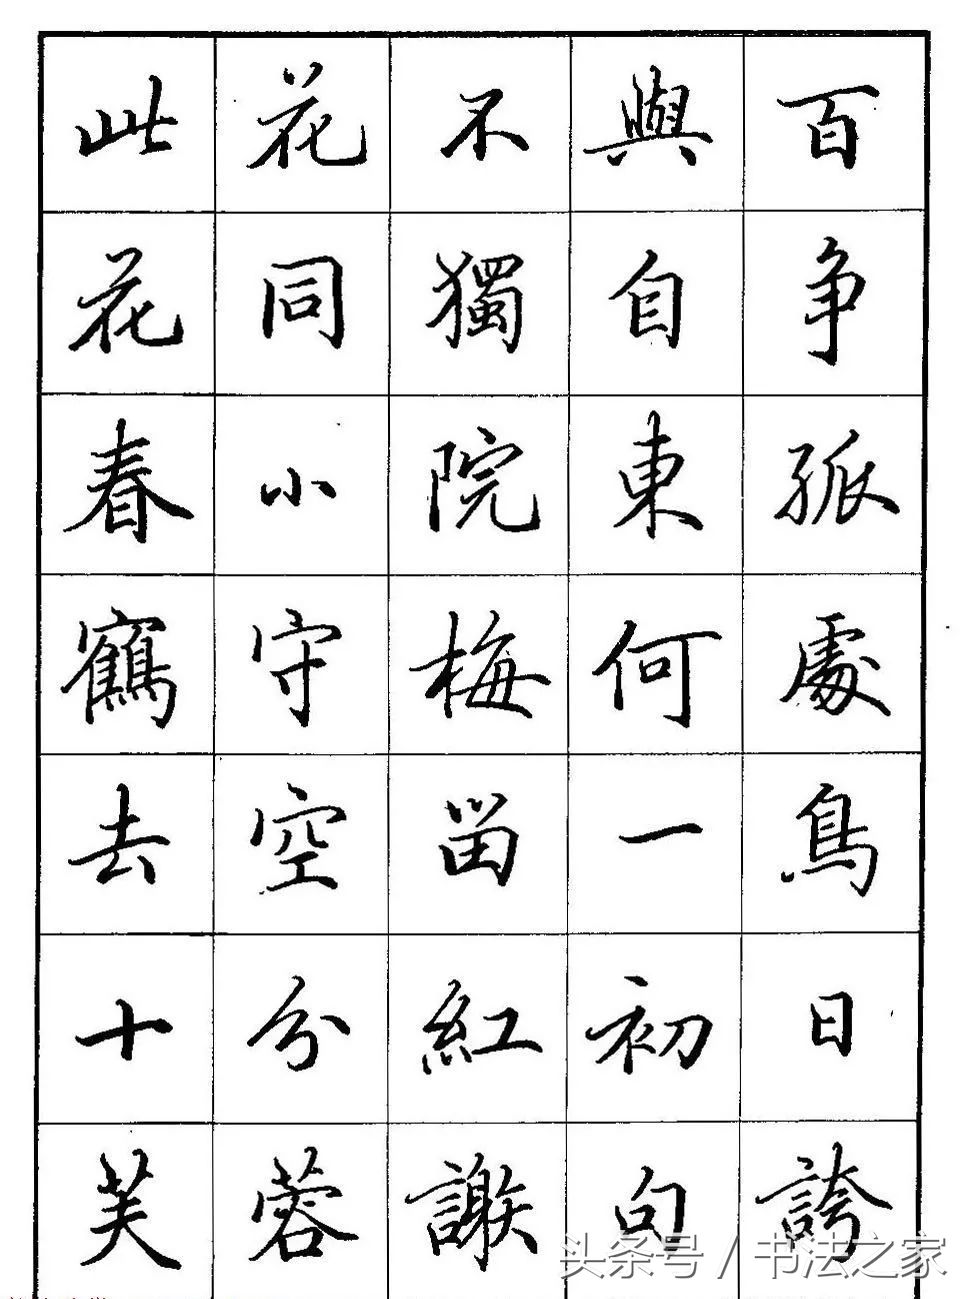 此花不與百
花同獨自争
春小院東孤
鶴守梅何處
去空留一鳥
十分紅初日
芙蓉謝句誇
头条号 / 书法之家